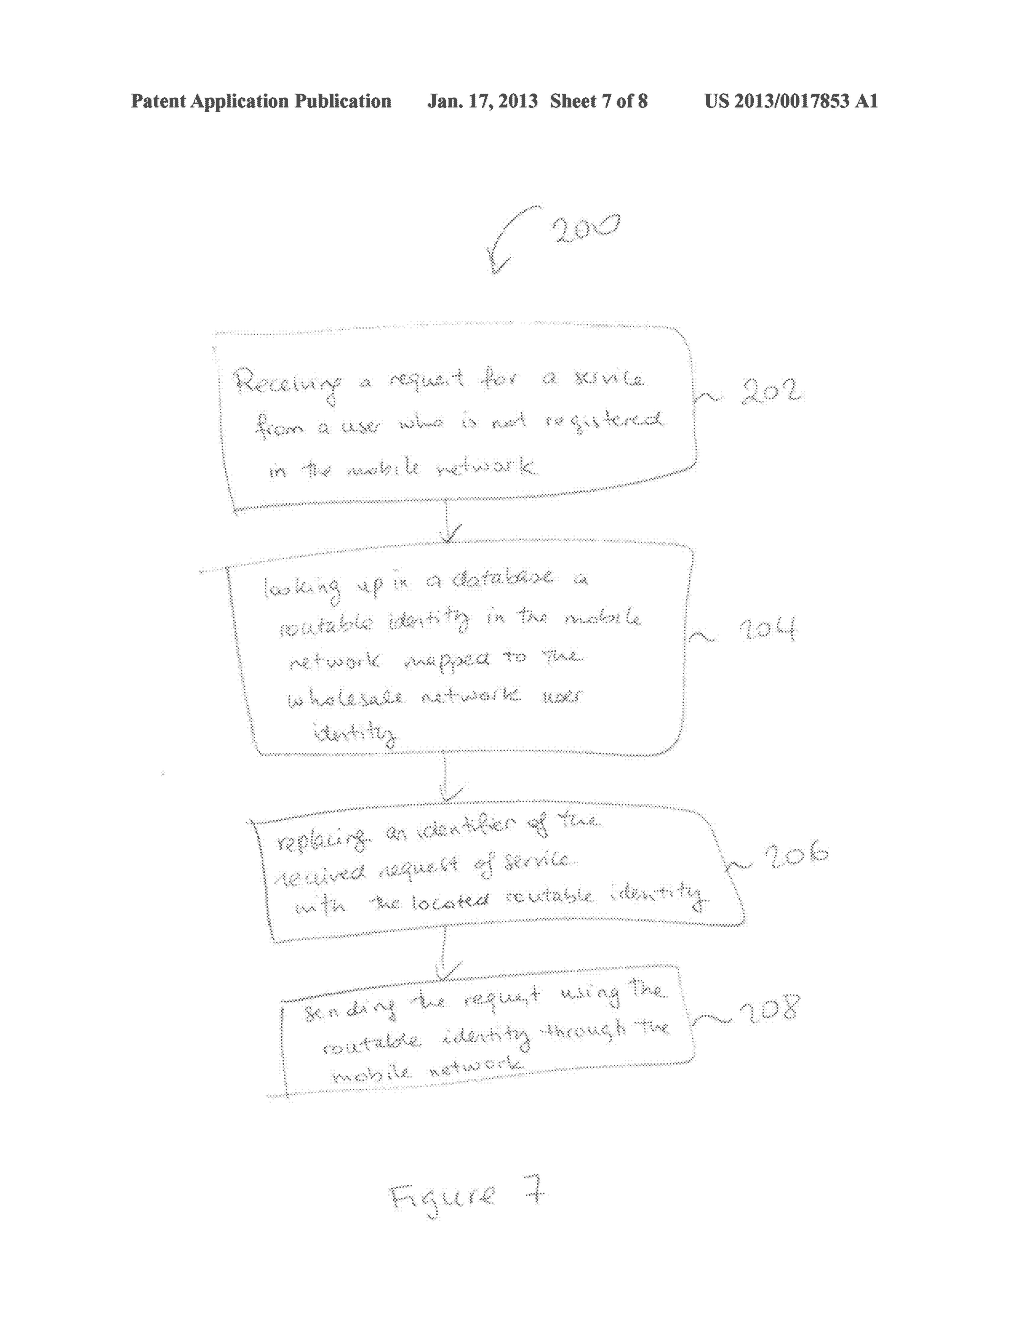 Patent Application Publication Jan. 17, 2013 Sheet 7 of 8 US 2013/0017853 A1
200
Receiving a request for a service
from a user who is not registered
in the mobile network
202
looking up in a database a
routable identity in the mobile
network mapped to the
wholesale network user
identity
204
replacing an identifier of the
received request of service
with the located routable identity
206
sending the request using the
routable identity through the
mobile network
208
Figure 7